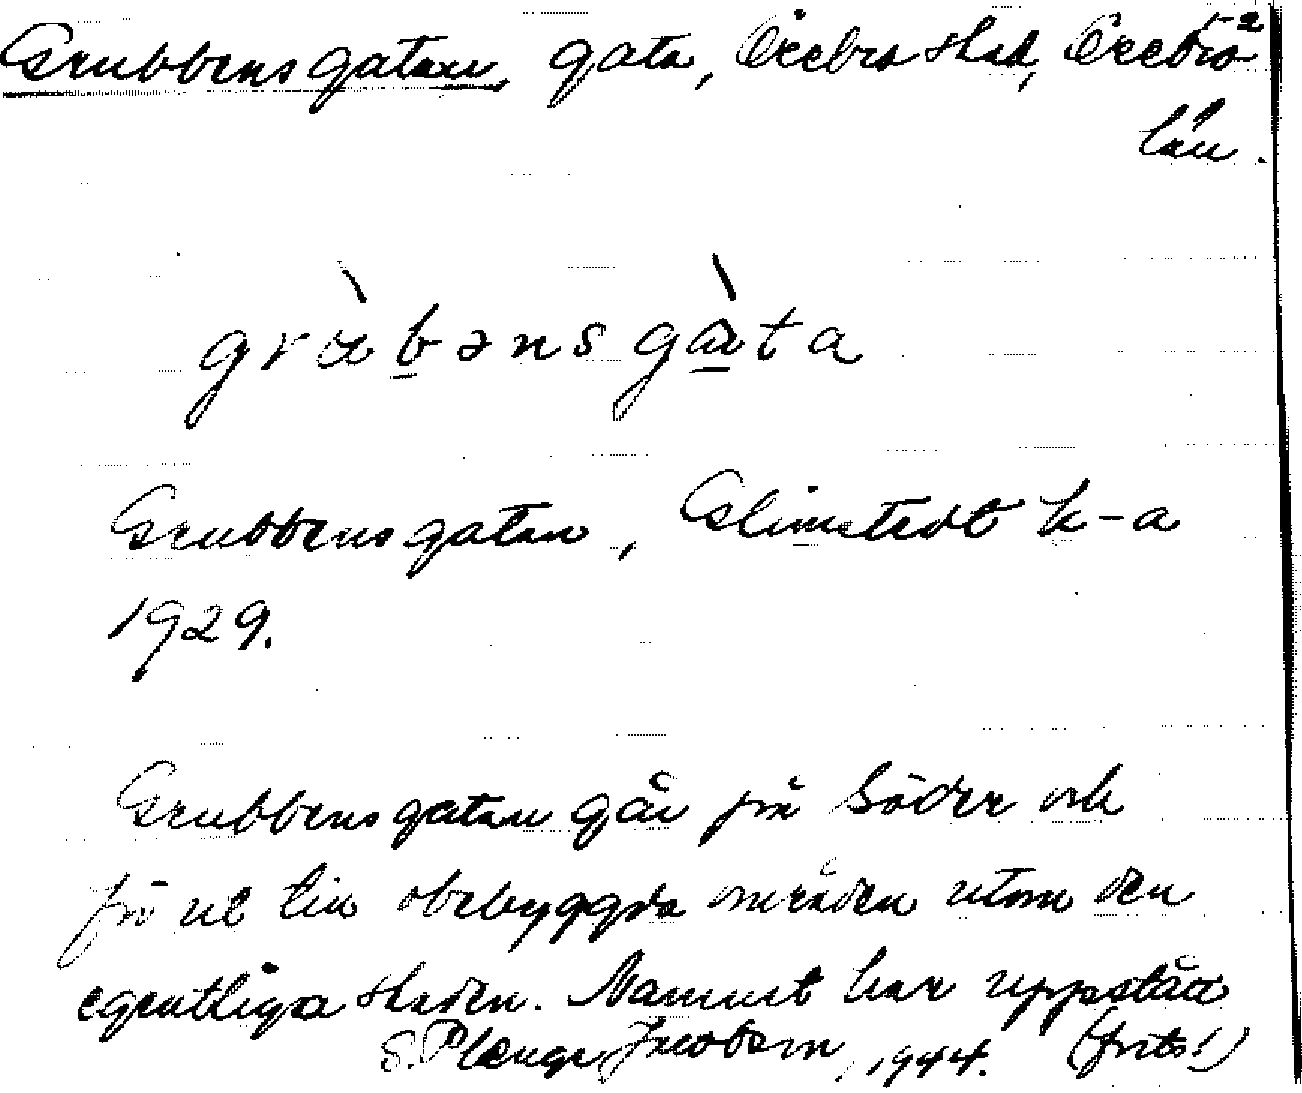 Grubbensgatan, gata, Örebro stad, Örebro
län.
grùbənsgàta
Grubbensgatan, Glimstedt k-a
1929.
Grubbensgatan går på Söder och
för ut till obebyggda områden utom den
egentliga staden. Namnet har uppstått
S. Plænge Jacobson, 1944. (forts!)